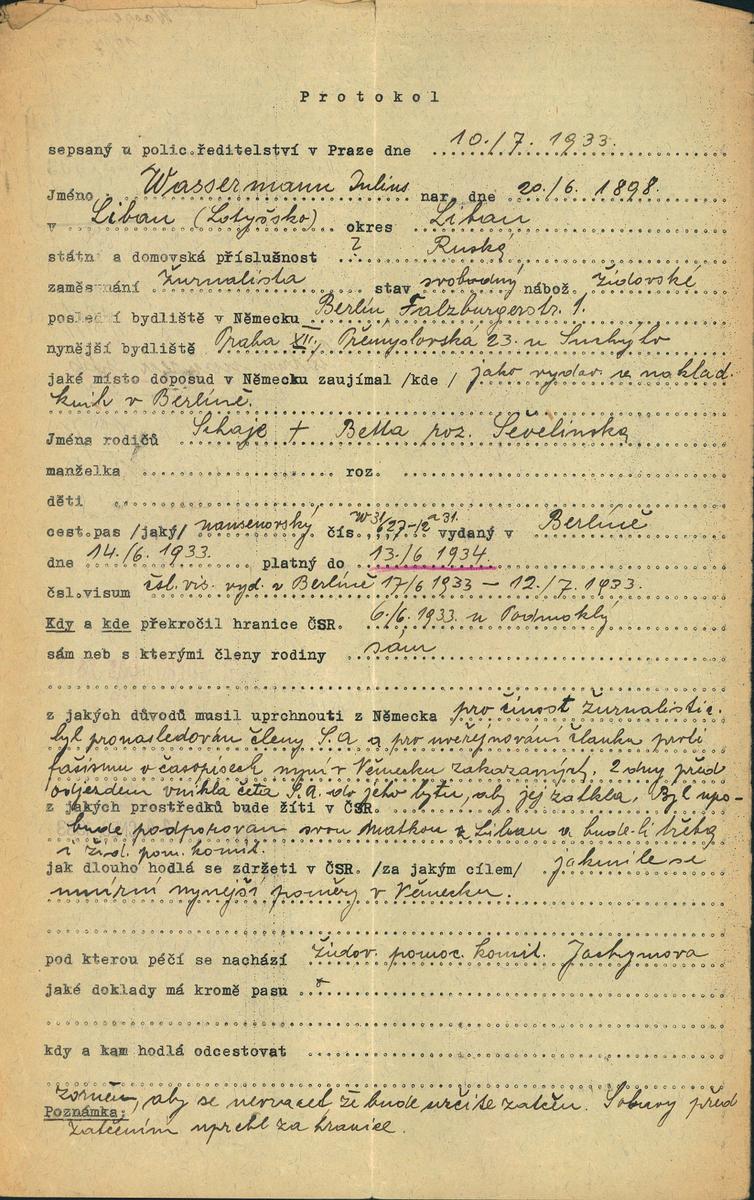 Protokol
sepsaný u polic.ředitelství v Praze dne 10./7. 1933.
Jméno Wassermann Julius nar. dne 20./6. 1898.
v Liban (Lotyšsko) okres Liban
státn a domovská příslušnost ? Ruská
zaměs nání žurnalista stav svobodný nábož. židovské
poslední bydliště v Německu Berlín Falzburgerstr. 1.
nynější bydliště Praha XII., Přemyslovská 23. u Suchých
jaké místo doposud v Německu zaujímal /kde / jako vydav. a naklad.
knih v Berlíně.
Jména rodičů + Betta roz. Ševelinská
manželka roz.
děti
cest.pas /jaký/ nansenovský čís. W 31/627-/2 a 31. vydaný v Berlíně
dne 14./6. 1933. platný do 13./6 1934.
čsl.visum čsl. vis. vyd. v Berlíně 17/6 1933 - 12./7. 1933.
Kdy a kde překročil hranice ČSR. 6./6. 1933 u Podmoklý
sám neb s kterými členy rodiny sám
z jakých důvodů musil uprchnouti z Německa pro činost žurnalistic.
byl pronásledován členy S.A a pro uveřejnování članku proti
fašismu v časopisech nyní v Německu zakazaných. 2 dny před
odjezdem vnikla četa S.A. do jeho bytu, aby jej zatkla. Byl upo-
z jakých prostředků bude žíti v ČSR.
bude podporován svou matkou z Liban a bude-li třeba
i žid. pom. komit.
jak dlouho hodlá se zdržeti v ČSR. /za jakým cílem/ jakmile se
umírní nynejší poměry v Německu.
pod kterou péčí se nachází židov. pomoc. komit. Jachymova
jaké doklady má kromě pasu
kdy a kam hodlá odcestovat
zorněn, aby se nevracel že bude určite zatčen. Z obavy před
Poznámka:
zatčením uprchl za hranice.